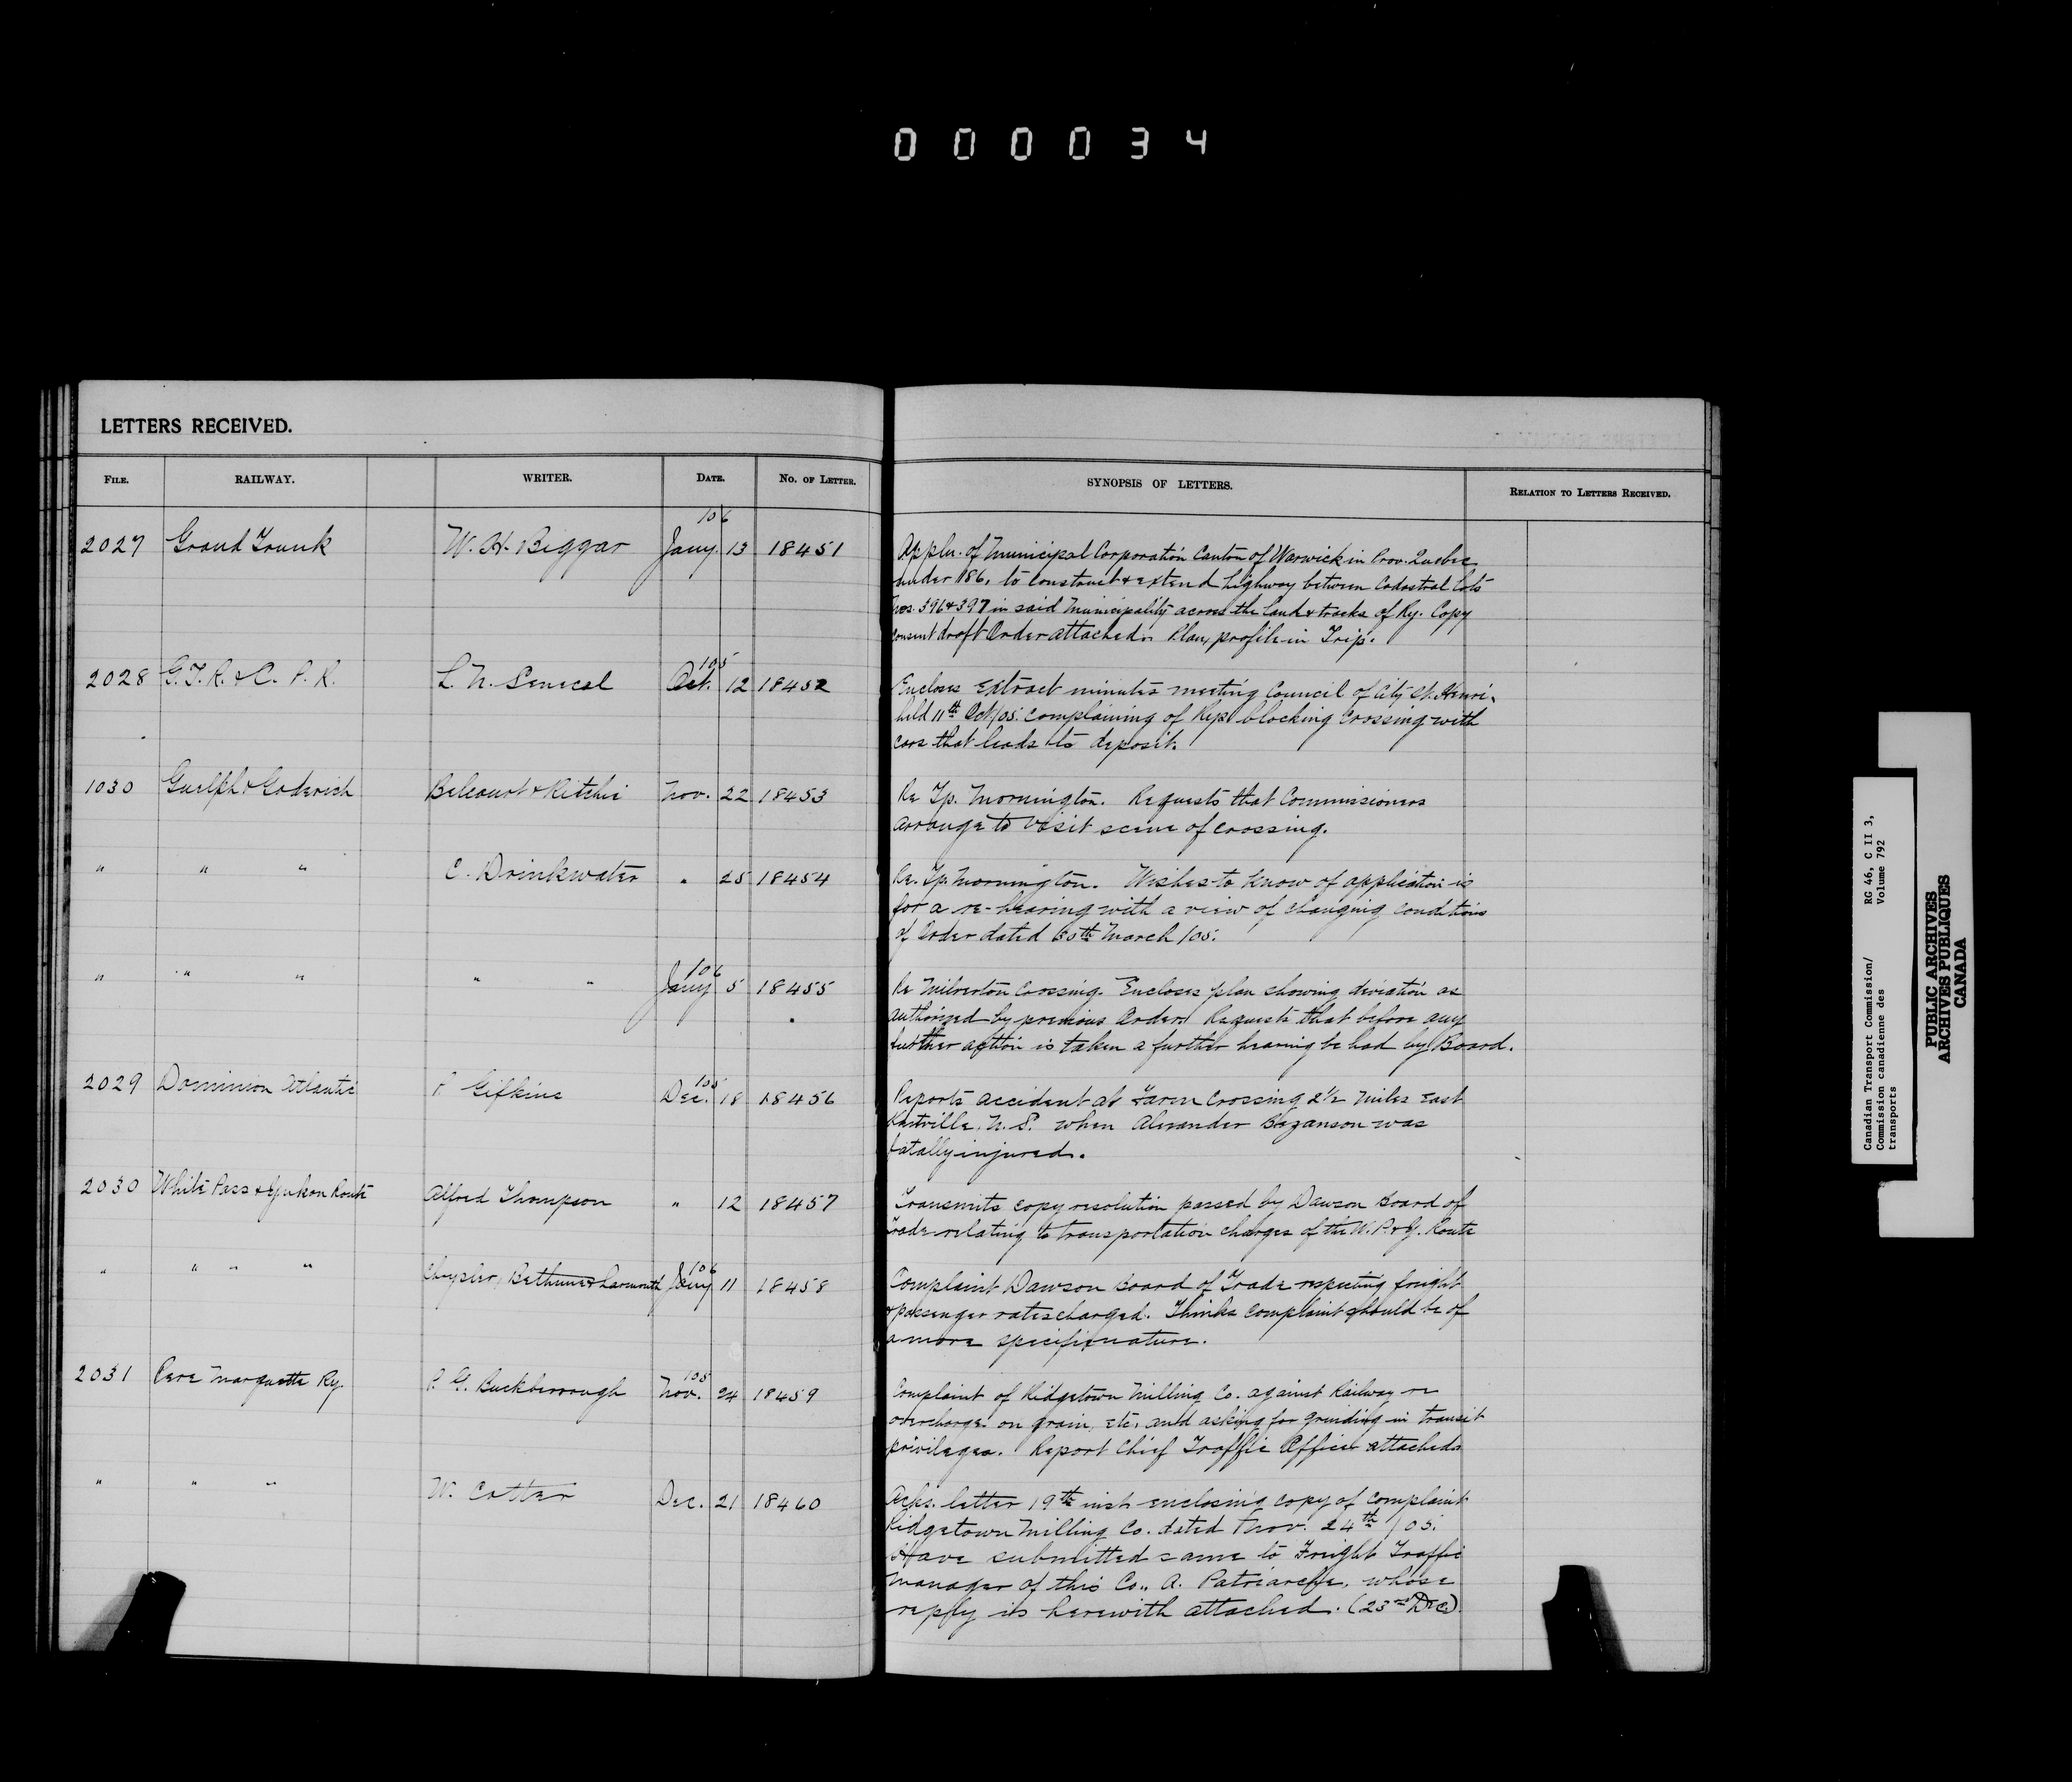 000034
LETTERS RECEIVED.
FILE. RAILWAY. WRITER. DATE. NO. OF LETTER. SYNOPSIS OF LETTERS. RELATION TO LETTERS RECEIVED.
/06
2027 Grand Trunk W. H. Biggar Jany. 13 18451 Appln. of Municipal Corporation Canton of Warwick in Prov. Quebec
under 186, to construct & extend highway between Cadastral Lots
Nos. 396 & 397 in said Municipality across the land & tracks of Ry. Copy
consent draft Order attached. Plan, profile in Trip.
/05
2028 G.T.R. & C.P.R. L. N. Senecal Oct. 12 18452 Encloses extract minutes meeting Council of City St. Henri,
held 11th Oct/05. complaining of Rys. blocking crossing with
cars that leads to deposit.
1030 Guelph & Goderich Belcourt & Ritchie Nov. 22 18453 Re Tp. Mornington. Requests that Commissioners
arrange to visit scene of crossing.
" " " E. Drinkwater " 25 18454 Re. Tp. Mornington. Wishes to know of application is
for a re-hearing with a view of changing conditions
of Order dated 30th March /05.
/06
" " " " " Jany 5 18455 Re Milverton Crossing. Encloses plan showing deviation as
authorized by previous Order. Requests that before any
further action is taken a further hearing be had by Board.
/05
2029 Dominion Atlantic P. Gifkins Dec. 18 18456 Reports accident at Farm Crossing 2 1/2 Miles East
N. S. when Alexander Bezanson was
fatally injured.
2030 White Pass & Yukon Route Alfred Thompson " 12 18457 Transmits copy resolution passed by Dawson Board of
Trade relating to transportation charges of the W. P. & Y. Route
/06
" " " " Chrysler, Bethune & Larmonth Jany 11 18458 Complaint Dawson Board of Trade respecting freight
& passenger rates charged. Thinks complaint should be of
a more specific nature.
/05
2031 Pere Marquette Ry. P. G. Buckborrough Nov. 24 18459 Complaint of Ridgetown Milling Co. against Railway re
overcharge on grain, etc, and asking for grinding in transit
privileges. Report Chief Traffic Officer attached.
" " " W. Cotter Dec. 21 18460 Acks. letter 19th inst enclosing copy of complaint
Ridgetown Milling Co. dated Nov. 24th /05.
Have submitted same to Freight Traffic
Manager of this Co., A. Patriarche, whose
reply is herewith attached. (23rd Dec).
Canadian Transport Commission/ RG 46, C II 3,
Commission canadienne des Volume 792
transports
PUBLIC ARCHIVES
ARCHIVES PUBLIQUES
CANADA